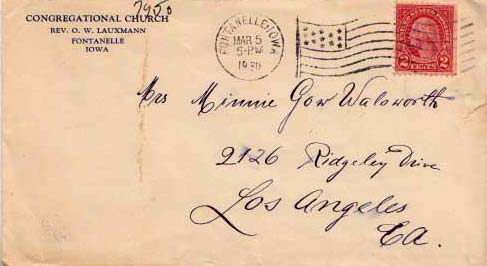 7950
CONGREGATIONAL CHURCH
REV. O. W. LAUXMANN
FONTANELLE
IOWA
FONTANELLE, IOWA
MAR 5
5-PM
1930
UNITED STATES POSTAGE
2 CENTS 2
Mrs Minnie Gow Walsworth
2126 Ridgeley Drive
Los Angeles
Ca.